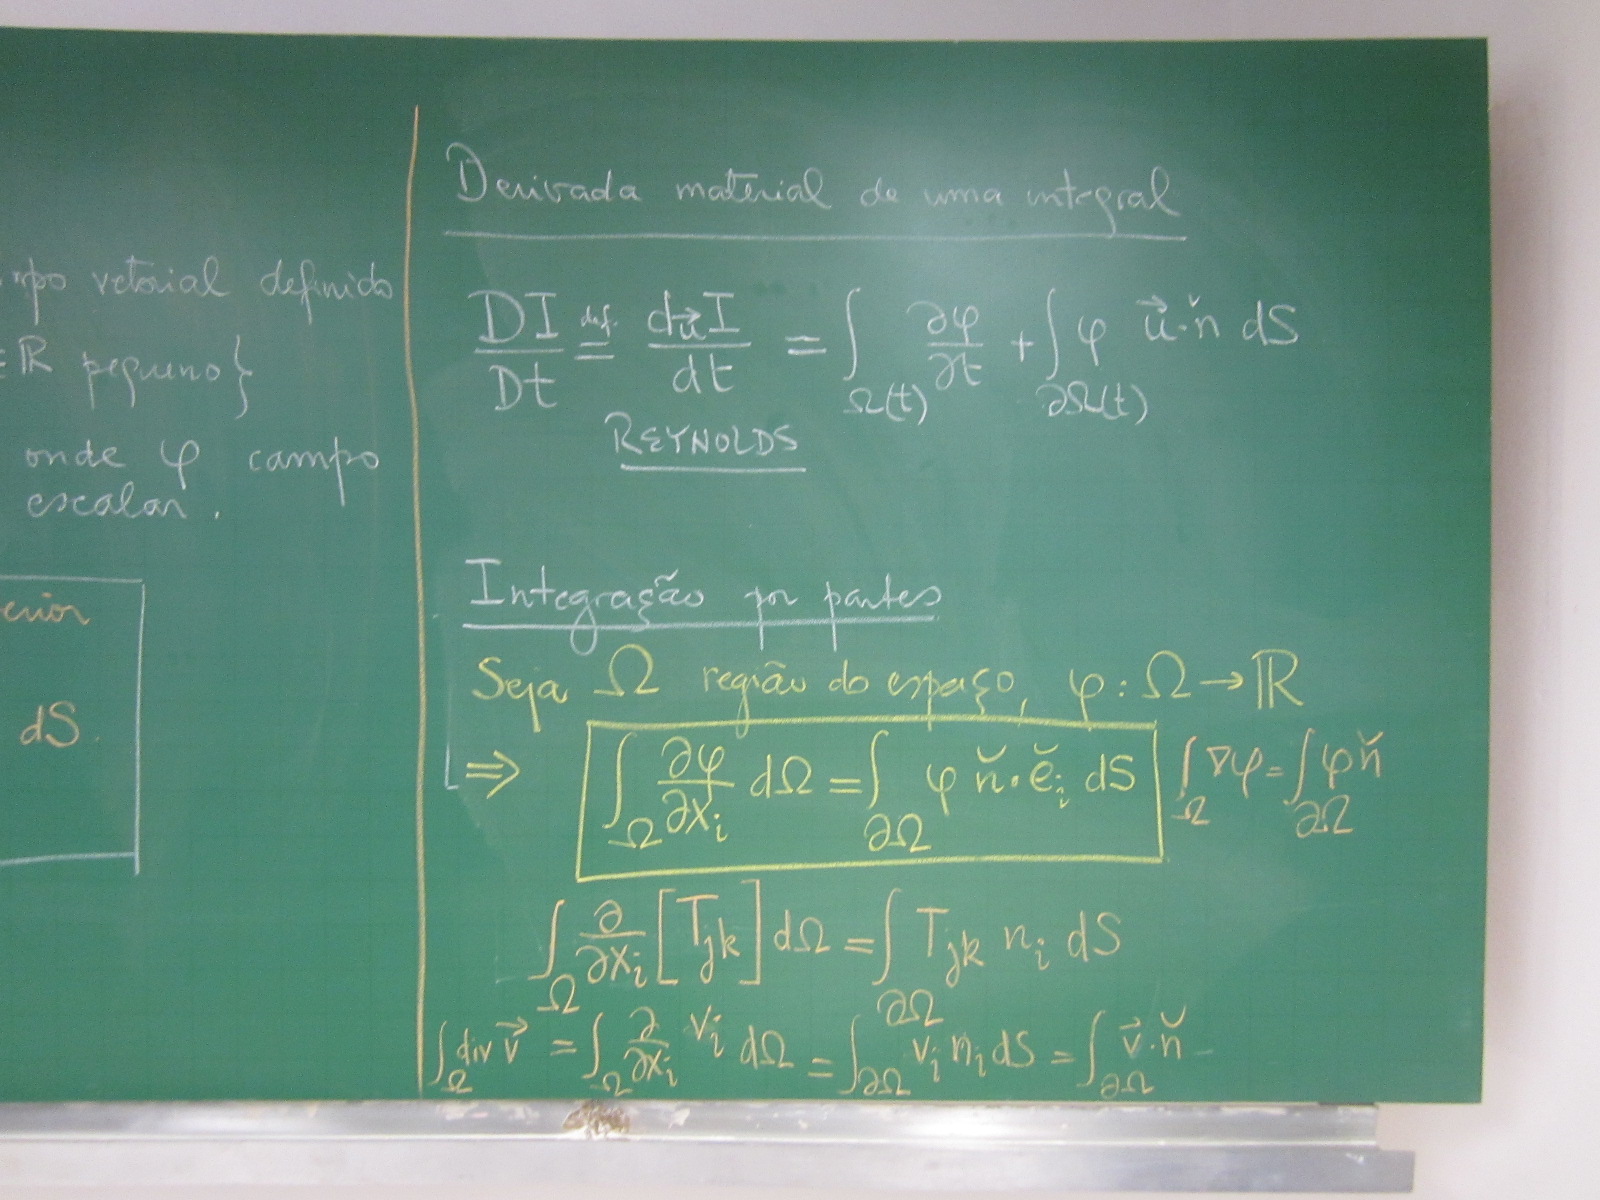 vetorial definido
ℝ pequeno}
onde φ campo
escalar.
dS.
Derivada material de uma integral
DI/Dt =^{def.} d_{\vec{u}}I/dt = ∫_{Ω(t)} ∂φ/∂t + ∫_{∂Ω(t)} φ \vec{u}·ň dS
REYNOLDS
Integração por partes
Seja Ω região do espaço, φ: Ω → ℝ
⇒ ∫_Ω ∂φ/∂x_i dΩ = ∫_{∂Ω} φ ň·ě_i dS ∫_Ω ∇φ = ∫_{∂Ω} φ ň
∫_Ω ∂/∂x_i [T_{jk}] dΩ = ∫_{∂Ω} T_{jk} n_i dS
∫_Ω div \vec{v} = ∫_Ω ∂/∂x_i v_i dΩ = ∫_{∂Ω} v_i n_i dS = ∫_{∂Ω} \vec{v}·ň